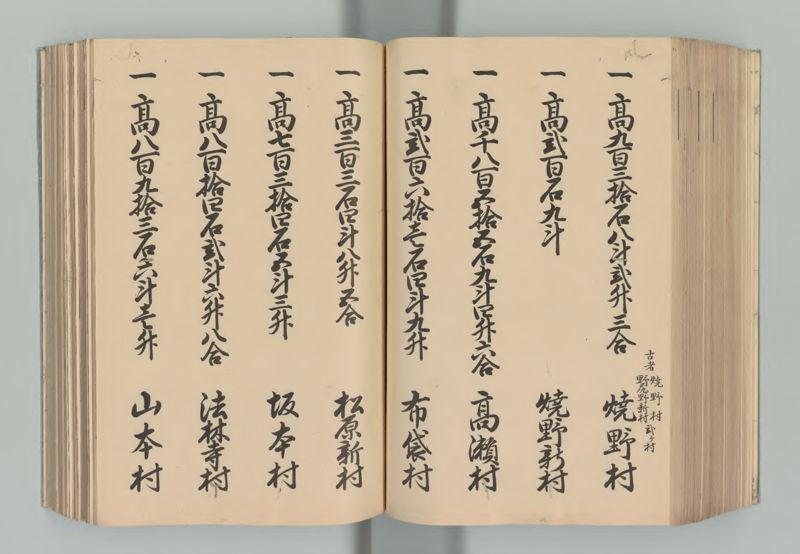 一高九百三拾石八斗弐升三合
古者 焼野村
野尻野新村 弐ヶ村
焼野村
一高弐百石九斗
焼野新村
一高千八百五拾五石九斗四升六合
高瀬村
一高弐百六拾壱石四斗九升
布袋村
一高三百三石四斗八升五合
松原新村
一高七百三拾四石五斗三升
坂本村
一高八百拾四石弐斗六升八合
法林寺村
一高八百九拾三石六斗壱升
山本村